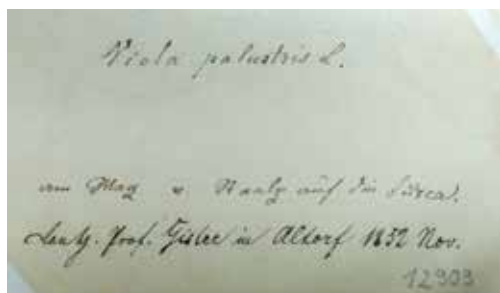 Viola palustris L.
am Weg v. Realp auf die Furca.
Prof. Gisler in Altorf 1852 Nov.
12903